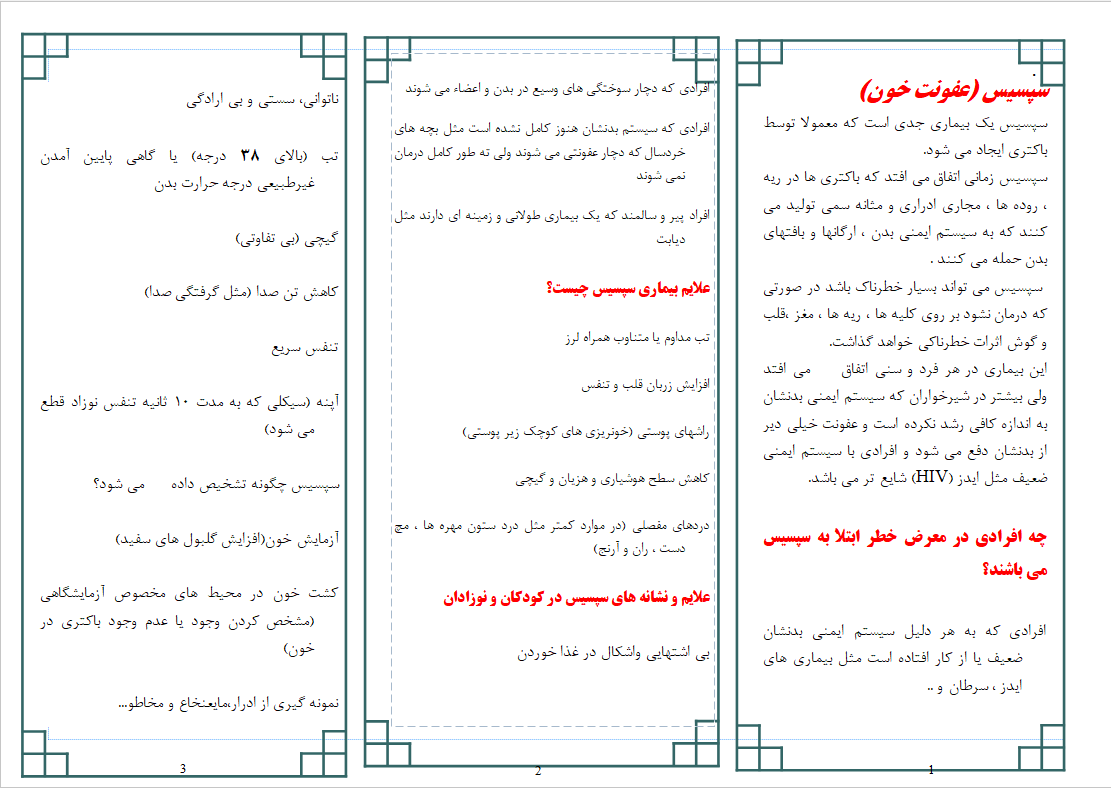 سپسیس (عفونت خون)
سپسیس یک بیماری جدی است که معمولا توسط
باکتری ایجاد می شود.
سپسیس زمانی اتفاق می افتد که باکتری ها در ریه
، روده ها ، مجاری ادراری و مثانه سمی تولید می
کنند که به سیستم ایمنی بدن ، ارگانها و بافتهای
بدن حمله می کنند .
سپسیس می تواند بسیار خطرناک باشد در صورتی
که درمان نشود بر روی کلیه ها ، ریه ها ، مغز ،قلب
و گوش اثرات خطرناکی خواهد گذاشت.
این بیماری در هر فرد و سنی اتفاق می افتد
ولی بیشتر در شیرخواران که سیستم ایمنی بدنشان
به اندازه کافی رشد نکرده است و عفونت خیلی دیر
از بدنشان دفع می شود و افرادی با سیستم ایمنی
ضعیف مثل ایدز (HIV) شایع تر می باشد.
چه افرادی در معرض خطر ابتلا به سپسیس
می باشند؟
افرادی که به هر دلیل سیستم ایمنی بدنشان
ضعیف یا از کار افتاده است مثل بیماری های
ایدز ، سرطان و ..
1
افرادی که دچار سوختگی های وسیع در بدن و اعضاء می شوند
افرادی که سیستم بدنشان هنوز کامل نشده است مثل بچه های
خردسال که دچار عفونتی می شوند ولی ته طور کامل درمان
نمی شوند
افراد پیر و سالمند که یک بیماری طولانی و زمینه ای دارند مثل
دیابت
علایم بیماری سپسیس چیست؟
تب مداوم یا متناوب همراه لرز
افزایش زربان قلب و تنفس
راشهای پوستی (خونریزی های کوچک زیر پوستی)
کاهش سطح هوشیاری و هزیان و گیچی
دردهای مفصلی (در موارد کمتر مثل درد ستون مهره ها ، مچ
دست ، ران و آرنج)
علایم و نشانه های سپسیس در کودکان و نوزادان
بی اشتهایی واشکال در غذا خوردن
2
ناتوانی، سستی و بی ارادگی
تب (بالای ۳۸ درجه) یا گاهی پایین آمدن
غیرطبیعی درجه حرارت بدن
گیچی (بی تفاوتی)
کاهش تن صدا (مثل گرفتگی صدا)
تنفس سریع
آپنه (سیکلی که به مدت ۱۰ ثانیه تنفس نوزاد قطع
می شود)
سپسیس چگونه تشخیص داده می شود؟
آزمایش خون(افزایش گلبول های سفید)
کشت خون در محیط های مخصوص آزمایشگاهی
(مشخص کردن وجود یا عدم وجود باکتری در
خون)
نمونه گیری از ادرار،مایعنخاع و مخاطو...
3